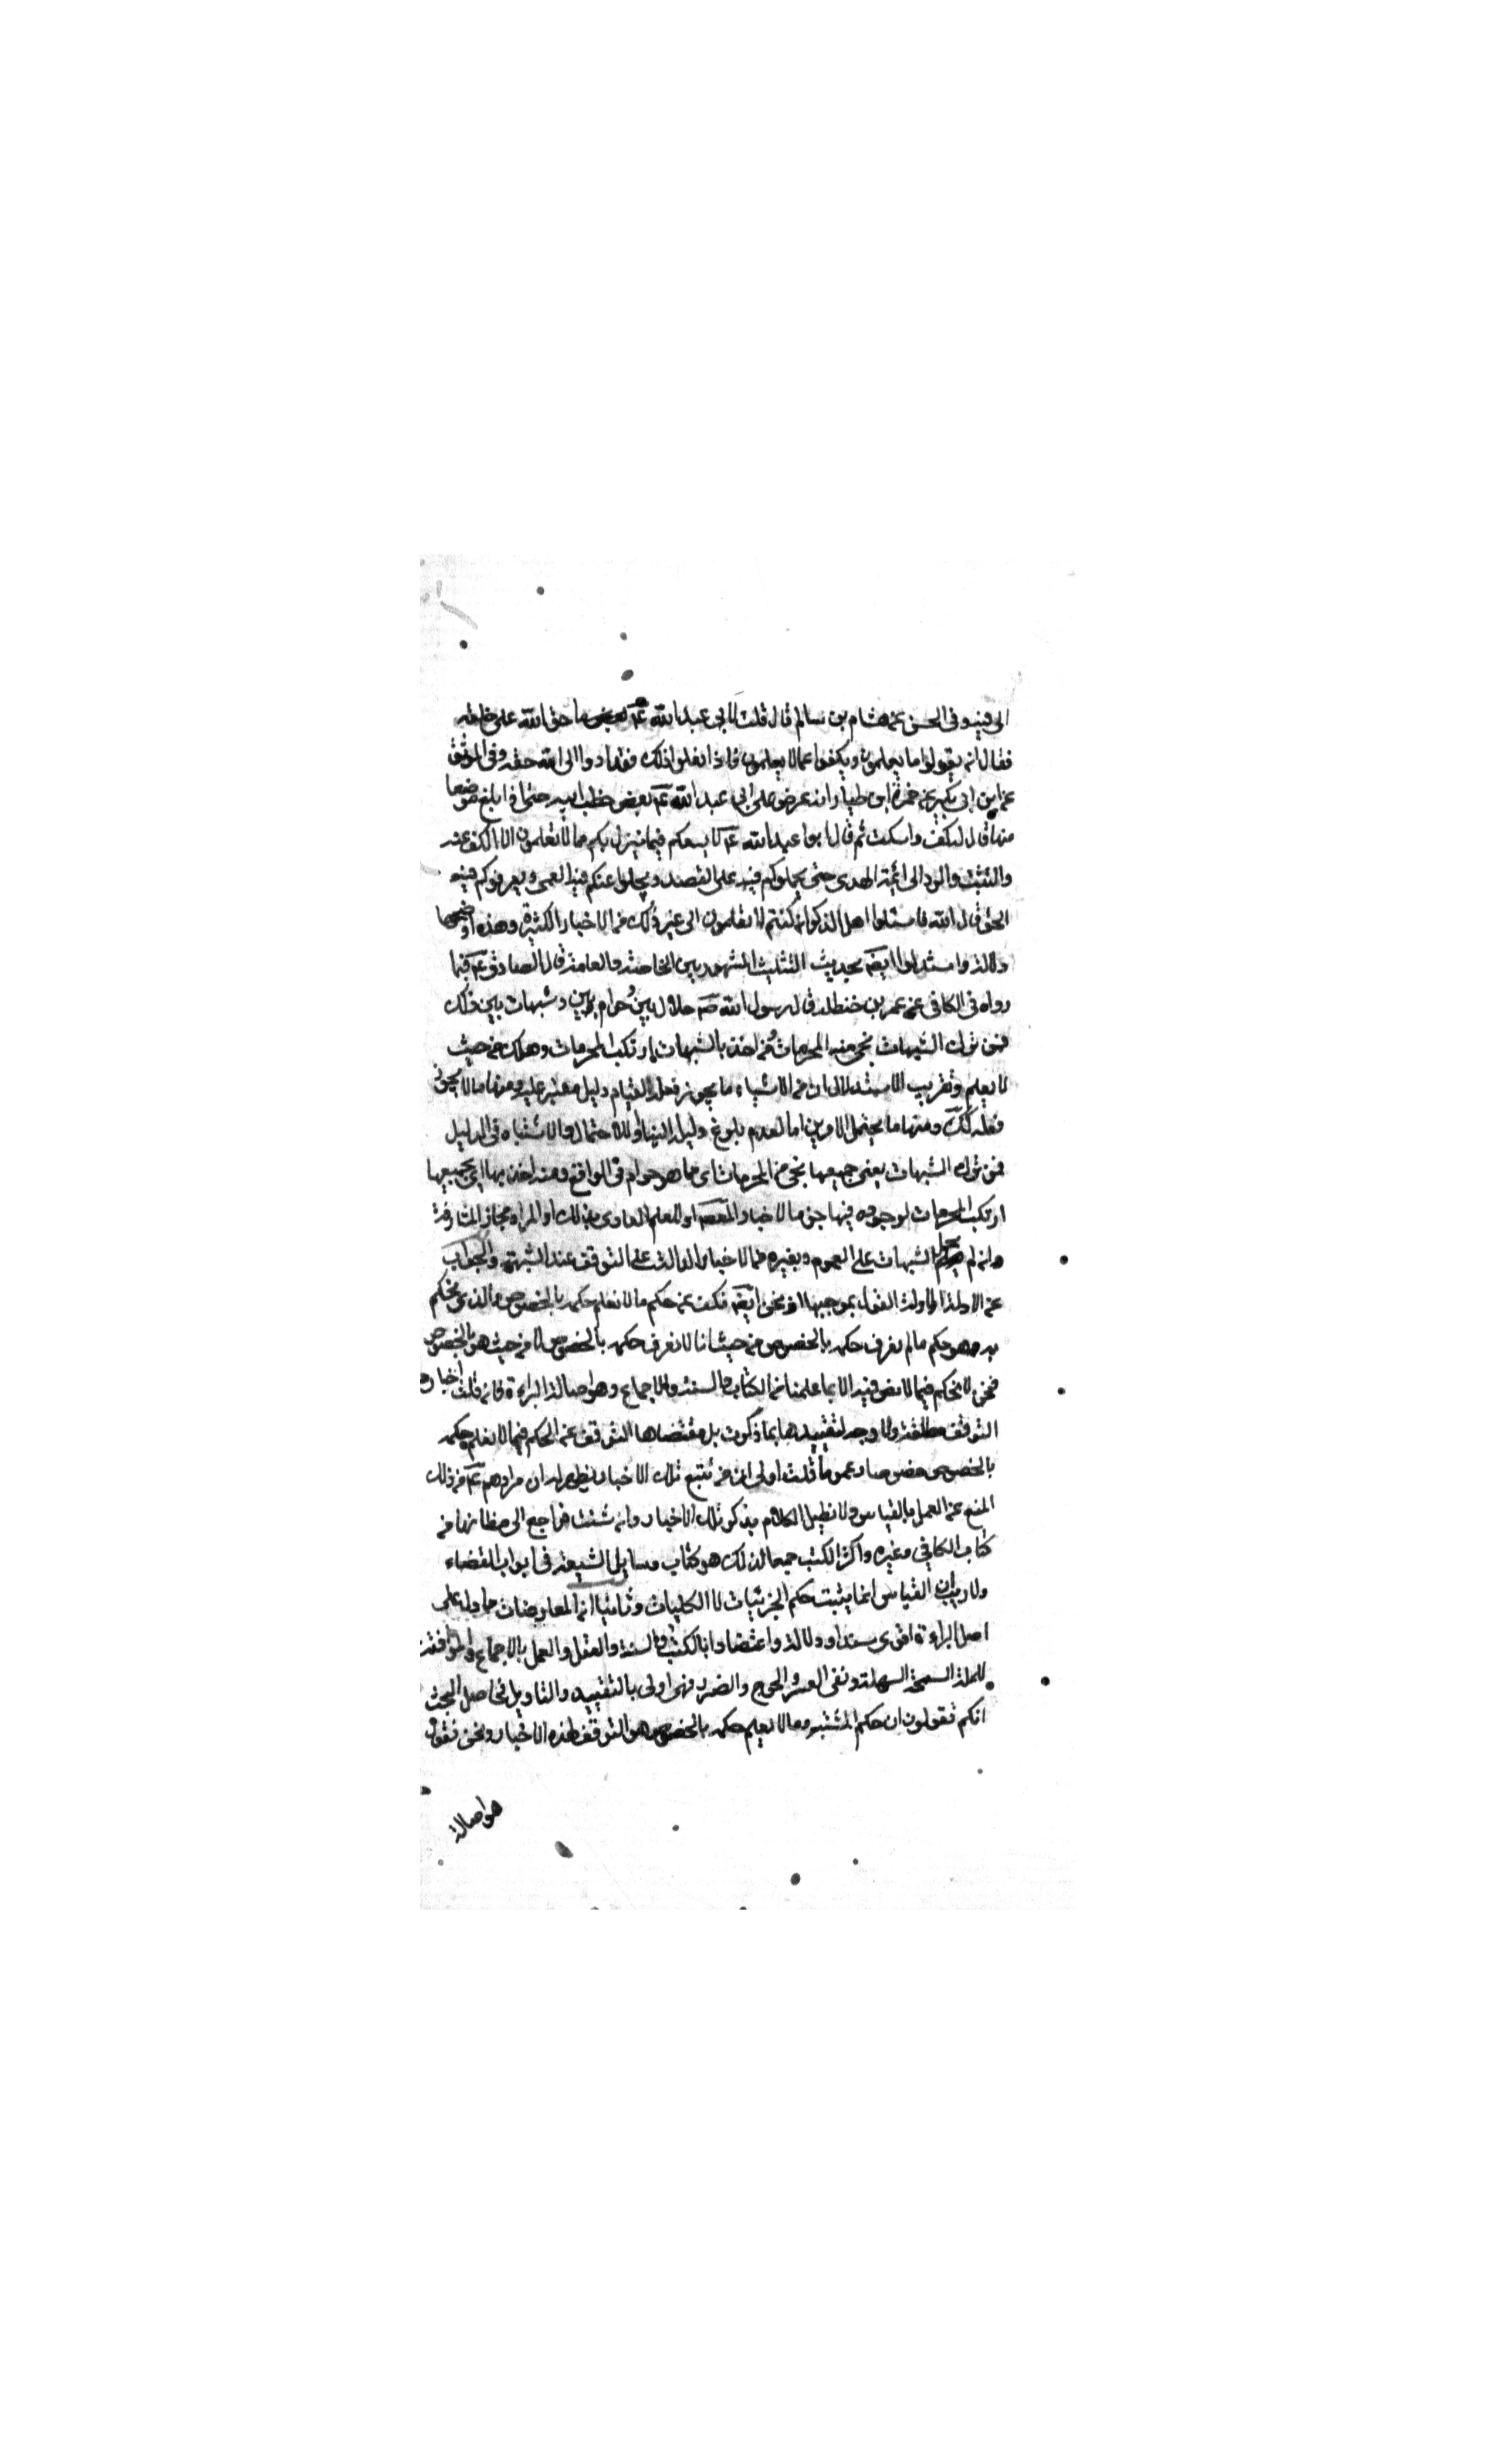 الى فيه وفى الحسن عن هشام بن سالم قال قلت لابى عبد الله عم ما حق الله على خلقه
فقال ان يقولوا ما يعلمون ويكفوا عما لا يعلمون فاذا فعلوا ذلك فقد ادوا الى الله حقه وفى الموثق
عن ابن ابى بكير عن حمزة ابن طيار انه عرض على ابى عبد الله عم بعض خطب ابيه حتى اذا بلغ موضعا
منها قال له كف واسكت ثم قال ابو عبد الله عم لا يسعكم فيما ينزل بكم مما لا تعلمون الا الكف عنه
والتثبت والرد الى ائمة الهدى حتى يحملوكم فيه على القصد ويجلوا عنكم فيه العمى ويعرفوكم فيه
الحق قال الله فاسئلوا اهل الذكر ان كنتم لا تعلمون الى غير ذلك من الاخبار الكثيرة وهذه اوضحها
دلالة واستدلوا ايضا بحديث التثليث المشهور بين الخاصة والعامة قال الصادق عم فيما
رواه فى الكافى عن عمر بن حنظلة قال رسول الله صم حلال بين وحرام بين وشبهات بين ذلك
فمن ترك الشبهات نجى من المحرمات ومن اخذ بالشبهات ارتكب المحرمات وهلك من حيث
لا يعلم وتقريب الاستدلال ان من الاشياء ما يجوز فعله لقيام دليل معتبر عليه ومنها ما لا يجوز
فعله كك ومنها ما يحتمل الامرين اما لعدم بلوغ دليله الينا او للاحتمال والاشتباه فى الدليل
فمن ترك الشبهات يعنى جميعها نجى من المحرمات اى مما هو حرام فى الواقع ومن اخذ بها اى بجميعها
ارتكب المحرمات لوجوده فيها جزما للاخبار او للعلم العادى بذلك او المراد مجاز المشارفة
وان لم يحمل الشبهات على العموم وبغيره من الاخبار الدالة على التوقف عند الشبهة والجواب
عن الادلة اولا القول بموجبها اذ نحن ايضا نكف عن حكم ما لا نعلم حكمه بالخصوص والذى نحكم
به هو حكم ما لم نعرف حكمه بالخصوص من حيث انا لا نعرف حكمه بالخصوص لا من حيث هو بالخصوص
فنحن لا نحكم فيما لا نص فيه الا بما علمنا من الكتاب والسنة والاجماع وهو اصالة البراءة فان قلت اخبار
التوقف مطلقة ولا وجه لتقييدها بما ذكرت بل مقتضاها التوقف عن الحكم فيما لا نعلم حكمه
بالخصوص خصوصا وعموما قلت اولا ان من تتبع تلك الاخبار يظهر له ان مرادهم عم من ذلك
المنع عن العمل بالقياس ولا نطيل الكلام بذكر تلك الاخبار وان شئت فراجع الى مظانها من
كتاب الكافى وغيره واكثر الكتب جمعا لذلك هو كتاب وسايل الشيعة فى ابواب القضاء
ولا ريب ان القياس انما يثبت حكم الجزئيات لا الكليات وثانيا ان المعارضات مما دل على
اصل البراءة اقوى سندا ودلالة واعتضادا بالكتاب والسنة والعقل والعمل بالاجماع والموافقة
للملة السمحة السهلة ونفى العسر والحرج والضرر فهى اولى بالتقييد والتاويل فى اصل البحث
انكم تقولون ان حكم المشتبه وما لا نعلم حكمه بالخصوص هو التوقف لهذه الاخبار ونحن نقول
هو اصالة